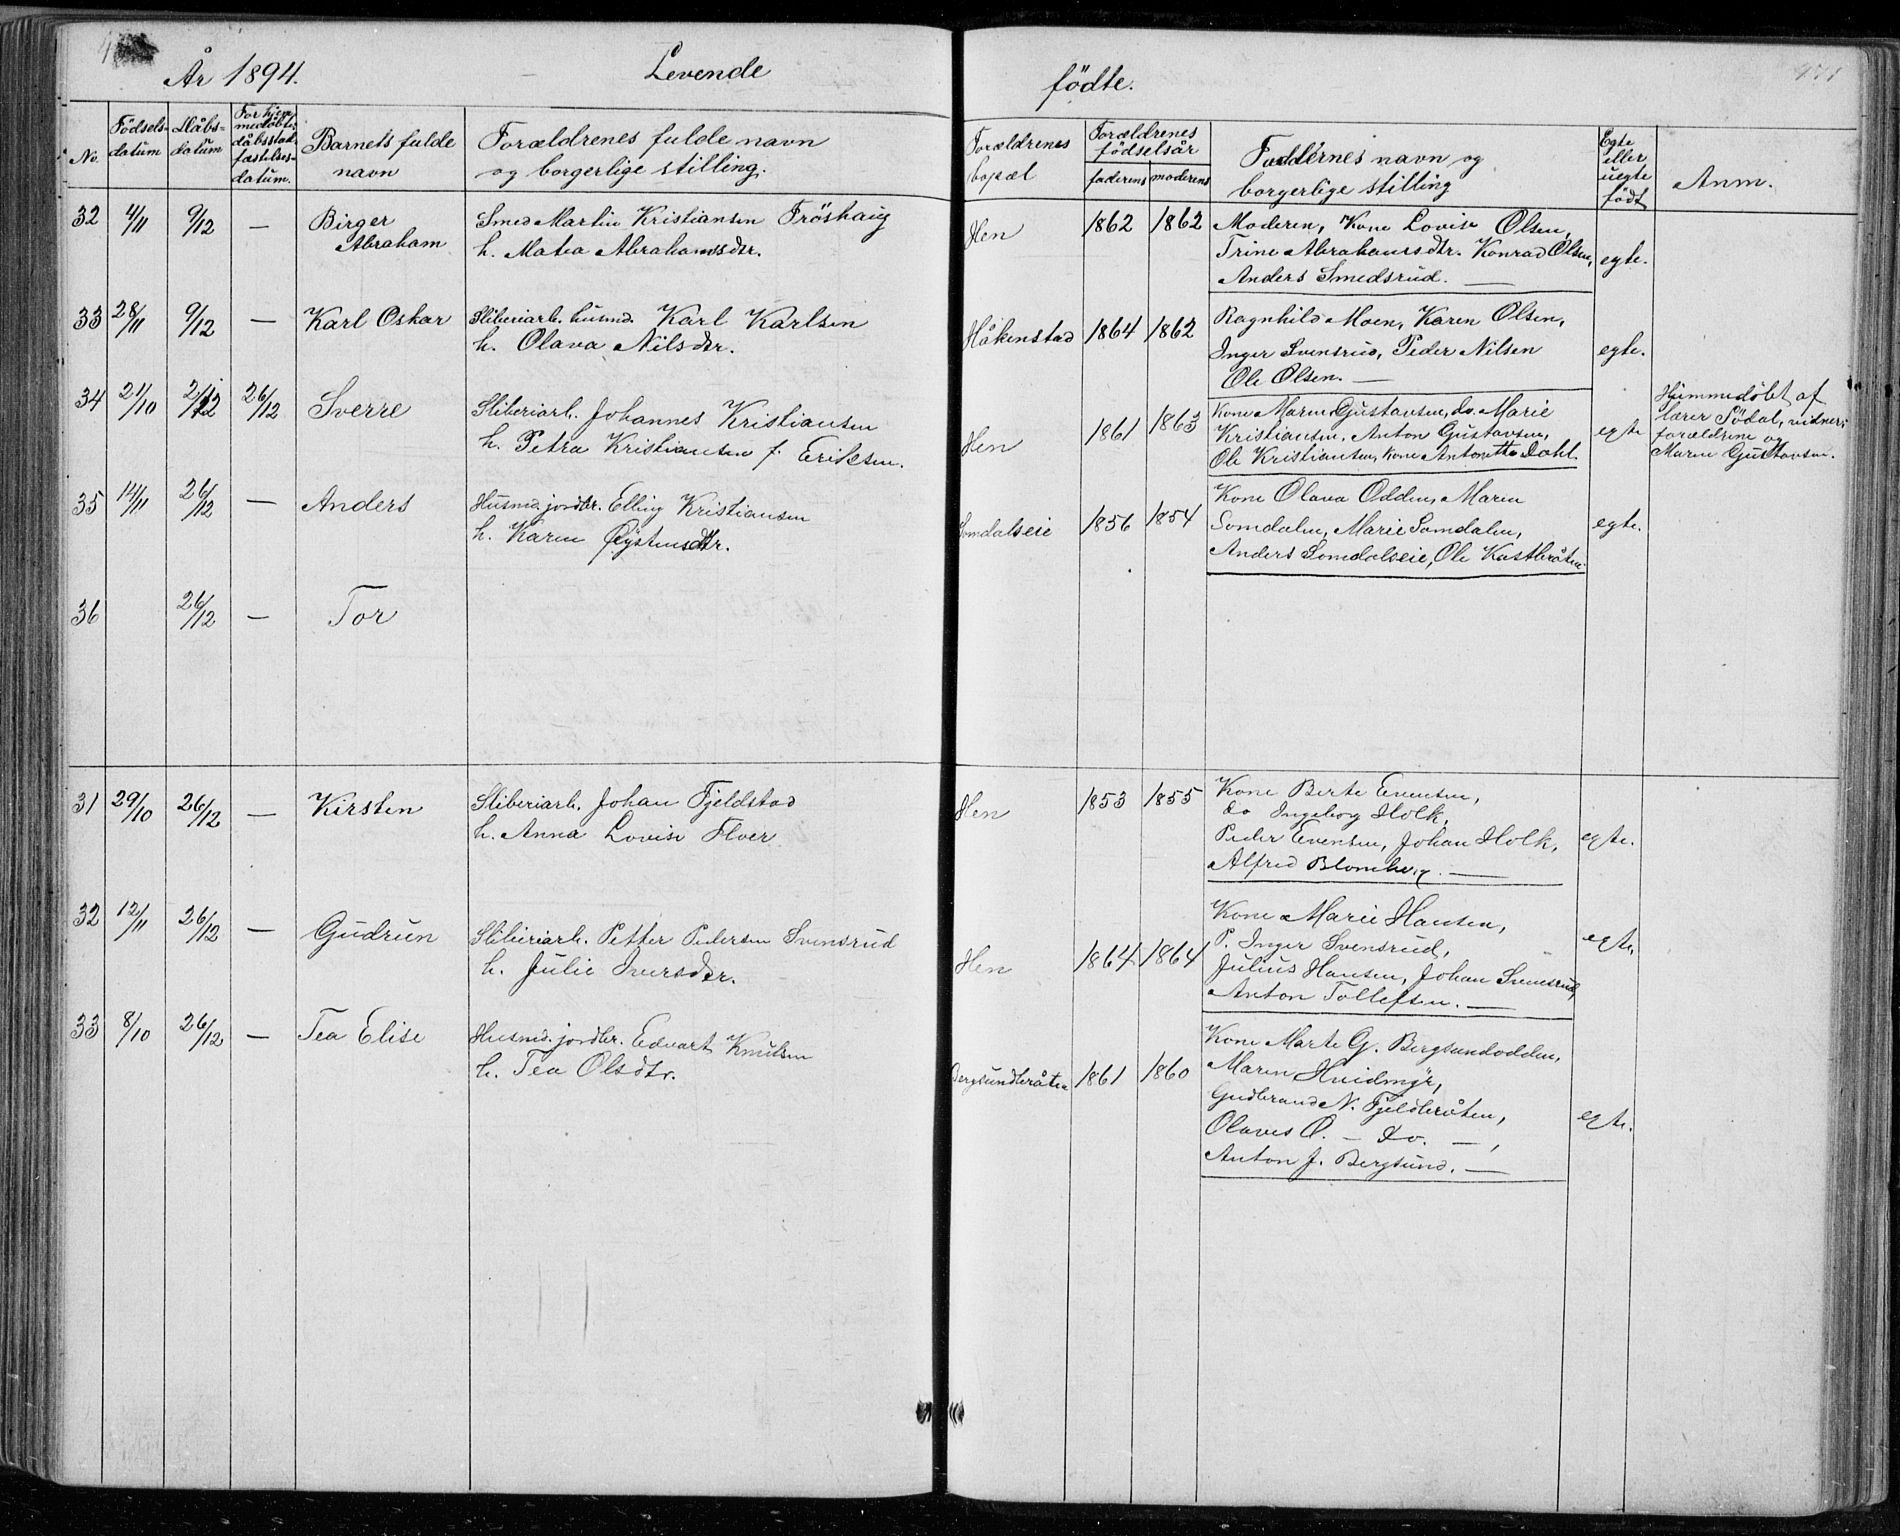 År 1894. Levende fødte.
No. Fødsels-datum Dåbs-datum For hjemmedøbte: dåbsstad-fæstelses-datum. Barnets fulde navn Forældrenes fulde navn og borgerlige stilling. Forældrenes bopæl Forældrenes fødselsår faderens moderens Faddernes navn og borgerlige stilling Egte eller uegte født Anm.
32 4/11 9/12 — Birger Smed Martin Kristiansen Frøshaug Hen 1862 1862 Moderen, Kone Lovise Olsen,
Abraham h. Matea Abrahamsdtr. Trine Abrahamsdtr. Konrad Olsen, egte.
Anders Smedsrud. —
33 28/11 9/12 — Karl Oskar Sliberiarb. husmd. Karl Karlsen Håkenstad 1864 1862 Ragnhild Moen, Karen Olsen,
h. Olava Nilsdtr. Inger Svensrud, Peder Nilsen egte.
Ole Olsen. —
34 21/10 2/12 26/12 Sverre Sliberiarb. Johannes Kristiansen Hen 1861 1863 Kone Maren Gustavsen, do. Marie egte Hjemmedøbt af
h. Petra Kristiansen f. Eriksen. Kristiansen, Anton Gustavsen, lærer Sødal, vidner:
Ole Kristiansen, Kone Antonette Dahl. forældrene og
Maren Gustavsen.
35 14/11 26/12 — Anders Husmd. jordbr. Elling Kristiansen Somdalseie 1856 1854 Kone Olava Odden, Maren
h. Karen Øystensdtr. Somdalen, Marie Somdalen, egte.
Anders Somdalseie, Ole Kastbråten.
36 26/12 — Tor
31 29/10 26/12 — Kirsten Sliberiarb. Johan Fjeldstad Hen 1853 1855 Kone Berte Evensen,
h. Anna Lovise Elver do Ingeborg Holk,
Peder Evensen, Johan Holk, egte.
Alfred Blomberg. —
32 12/11 26/12 — Gudrun Sliberiarb. Petter Pedersen Svensrud Hen 1864 1864 Kone Marie Hansen,
h. Julie Iversdtr. P. Inger Svensrud, egte.
Julius Hansen, Johan Svensrud,
Anton Tollefsen. —
33 8/10 26/12 — Tea Elise Husmd. jordbr. Edvart Knutsen Bergsundbråten 1861 1860 Kone Marte G. Bergsundodden,
h. Tea Olsdtr. Maren Hvidmyr,
Gudbrand N. Fjeldbråten, egte.
Olaves O. — do. —,
Anton J. Bergsund. —